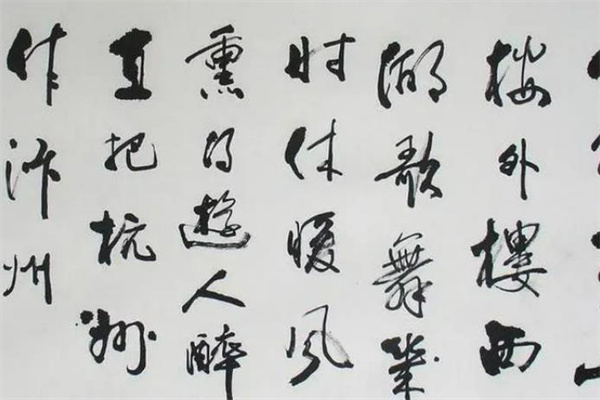 楼外樓西
湖歌舞幾
时休暖风
熏得遊人醉
直把杭州
作汴州